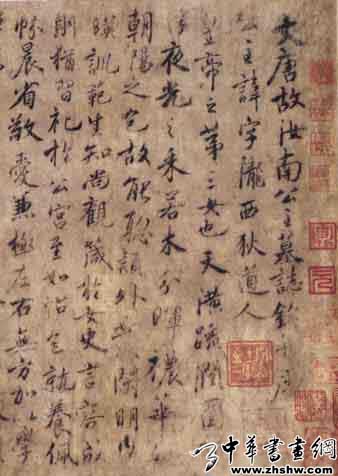 大唐故汝南公主墓誌銘并序
公主諱字隴西狄道人
皇帝之第三女也天潢疏潤圓
夜光之采若木分暉穠華
朝陽之色故能聰穎外發閑明内
暎訓範生知尚觀箴於女史言容成
則猶習礼於公宮至如怡色就養佩
帉晨省敬愛兼極左右無方加以學
中華書畫網
www.zhshw.com